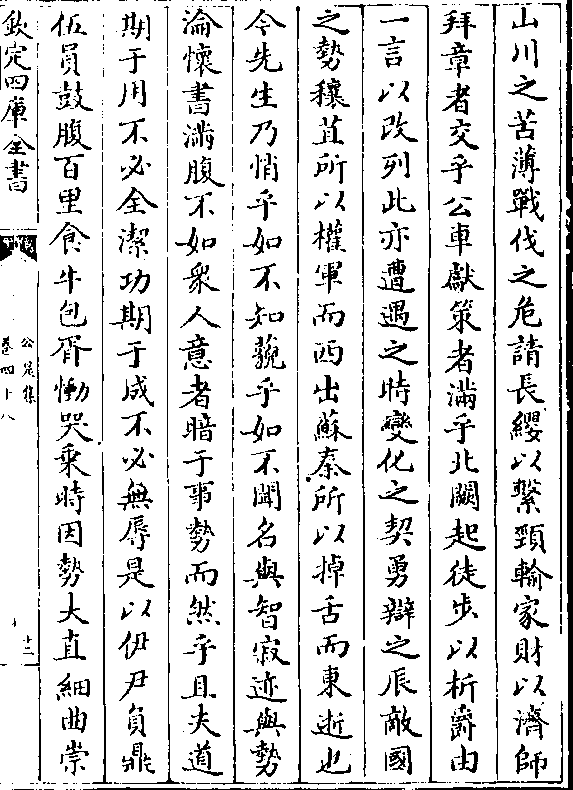 山川之苦薄戰伐之危請長纓以繫頸輸家財以濟師
拜章者交乎公車獻策者滿乎北闕起徒步以析爵由
一言以改列此亦遭遇之時變化之契勇辯之辰敵國
之勢穰苴所以權軍而西出蘇秦所以掉舌而東逝也
今先生乃悄乎如不知藐乎如不聞名與智寂迹與勢
淪懷書滿腹不如衆人意者暗于事勢而然乎且夫道
期于用不必全潔功期于成不必無辱是以伊尹負鼎
伍員鼓腹百里食牛包胥慟哭乘時因勢大直細曲崇
欽定四庫全書
公是集
卷四十八
十二